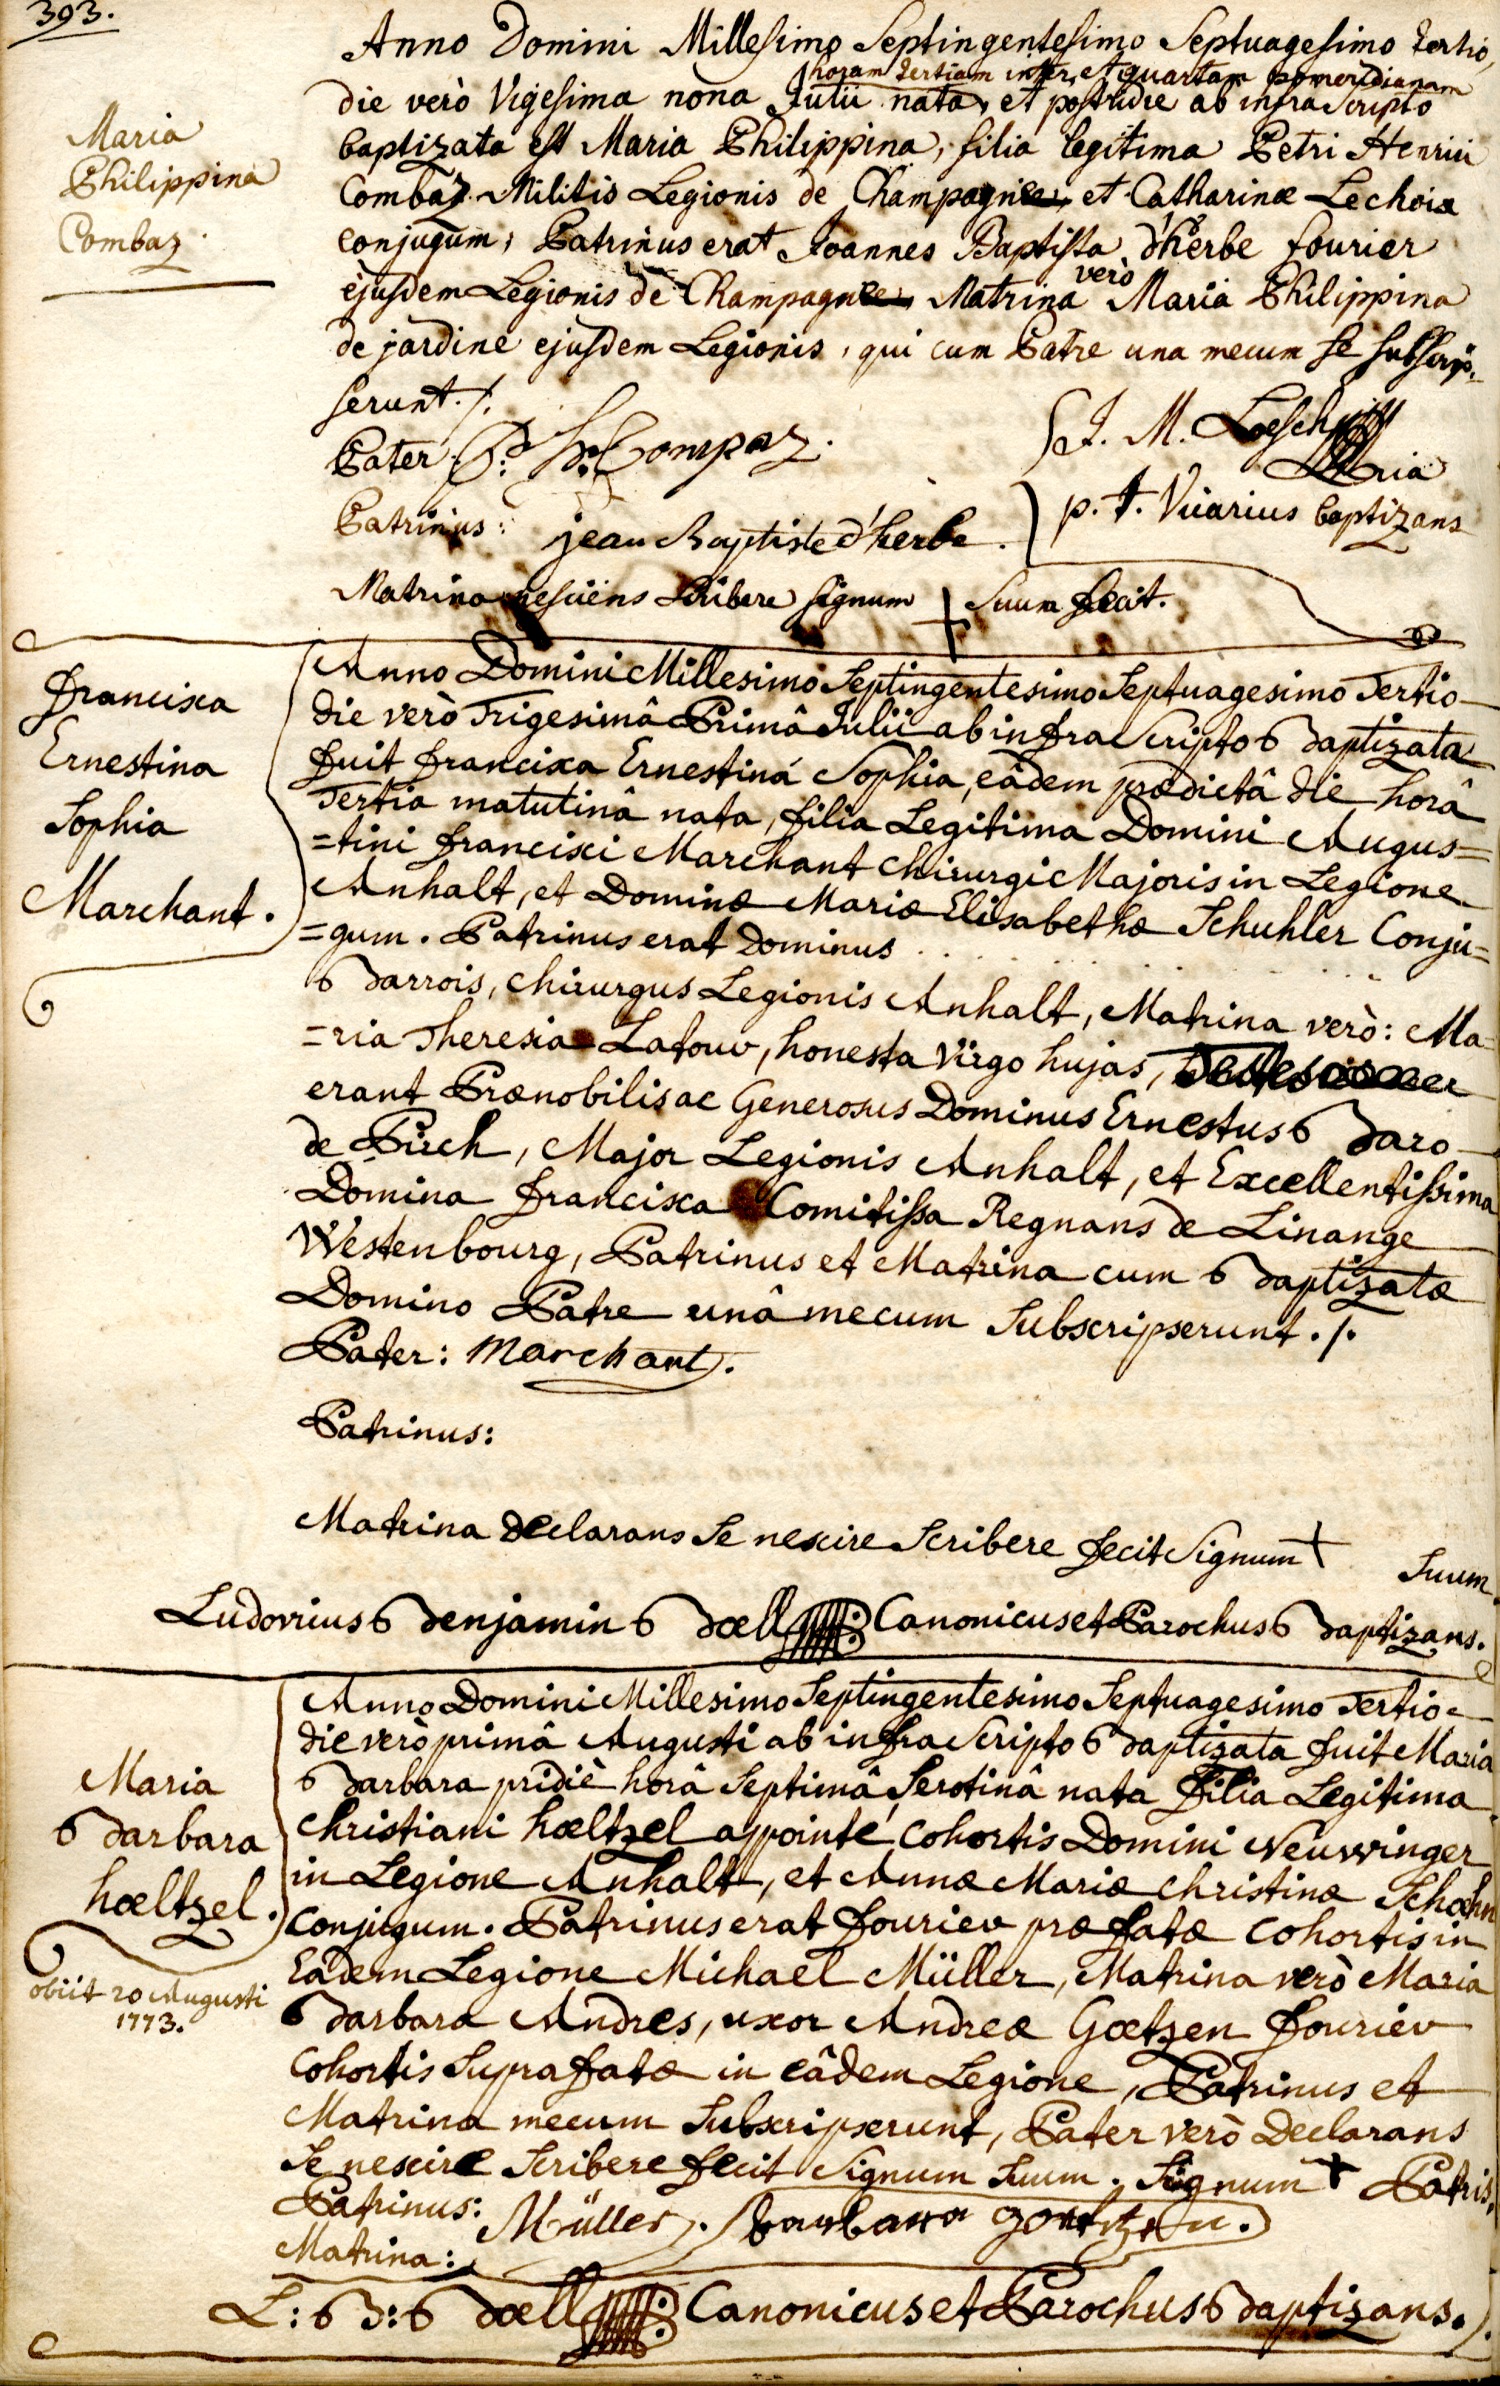 393.
Maria
Philippina
Combaz.
Anno Domini Millesimo Septingentesimo Septuagesimo tertio,
horam tertiam inter, et quartam pomeridianam
die verò Vigesima nona Julii nata, et postridie ab infra Scripto
baptizata est Maria Philippina, filia legitima Petri Henrici
Combaz Militis Legionis de Champagne, et Catharinæ Lechoix
conjugum, Patrinus erat Joannes Baptista d'herbe fourier
ejusdem Legionis de Champagne, Matrina verò Maria Philippina
de jardine ejusdem Legionis, qui cum Patre una mecum se subscrip-
serunt ./.
Pater P: h: Compaz.
J. M. Loesch
p. t. Vicarius baptizans
Patrinus: jean Baptiste d'herbe.
Matrina nesciens scribere signum + suum fecit.
Francisca
Ernestina
Sophia
Marchant.
Anno Domini Millesimo Septingentesimo Septuagesimo Tertio
die verò Trigesimâ Primâ Julii ab infra Scripto Baptizata
fuit francisca Ernestina Sophia, eâdem prædictâ die horâ
Tertia matutinâ nata, filia Legitima Domini Augus=
=tini francisci Marchant chirurgi Majoris in Legione
Anhalt, et Dominæ Mariæ Elisabethæ Schuhler Conju=
=gum. Patrinus erat Dominus . . . . . . . .
Barrois, chirurgus Legionis Anhalt, Matrina verò: Ma=
=ria Theresia Latour, honesta Virgo hujas,
erant Prænobilis ac Generosus Dominus Ernestus Baro
de Pirch, Major Legionis Anhalt, et Excellentissima
Domina francisca Comitissa Regnans de Linange
Westenbourg, Patrinus et Matrina cum Baptizatæ
Domino Patre unâ mecum Subscripserunt ./.
Pater: Marchant.
Patrinus:
Matrina declarans Se nescire Scribere fecit Signum + Suum.
Ludovicus Benjamin Bœll Canonicus et Parochus Baptizans.
Maria
Barbara
hœltzel.
obiit 20 Augusti
1773.
Anno Domini Millesimo Septingentesimo Septuagesimo Tertio
die verò primâ Augusti ab infra Scripto Baptizata fuit Maria
Barbara pridiè horâ Septimâ Serotinâ nata filia Legitima
christiani hœltzel appointé cohortis Domini Neuwinger
in Legione Anhalt, et Annæ Mariæ christinæ Schœhn
conjugum. Patrinus erat fourier præfatæ cohortis in
Eâdem Legione Michael Müller, Matrina verò Maria
Barbara Andres, uxor Andreæ Gœtzen fourier
cohortis Suprafatæ in eâdem Legione, Patrinus et
Matrina mecum Subscripserunt, Pater verò Declarans
Se nescire Scribere fecit Signum Suum. Signum + Patris.
Patrinus: Müller. barbara
Matrina:
L: B: Bœll Canonicus et Parochus Baptizans ./.